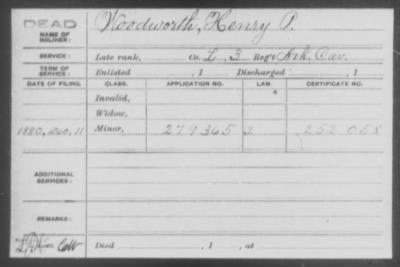 DEAD
NAME OF SOLDIER: Woodworth, Henry P.
SERVICE: Late rank, Co. L, 3 Reg't Ark. Cav.
TERM OF SERVICE: Enlisted , 1 Discharged , 1
DATE OF FILING. CLASS. APPLICATION NO. LAW. CERTIFICATE NO.
Invalid,
Widow,
1880, Dec. 11 Minor, 279365 252 058
ADDITIONAL SERVICES:
REMARKS:
Died , 1 , at